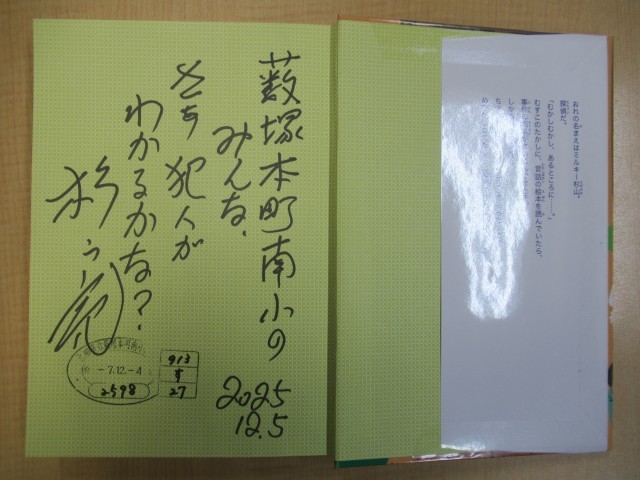 薮塚本町南小の
みんな、
さあ 犯人が
わかるかな?
杉山亮
2025
12.5
-7.12.-4
2598
913
す
27
おれの名まえはミルキー杉山。
探偵だ。
「むかしむかし、あるところに……。」
むすこのたかしに、昔話の絵本を読んでいたら、